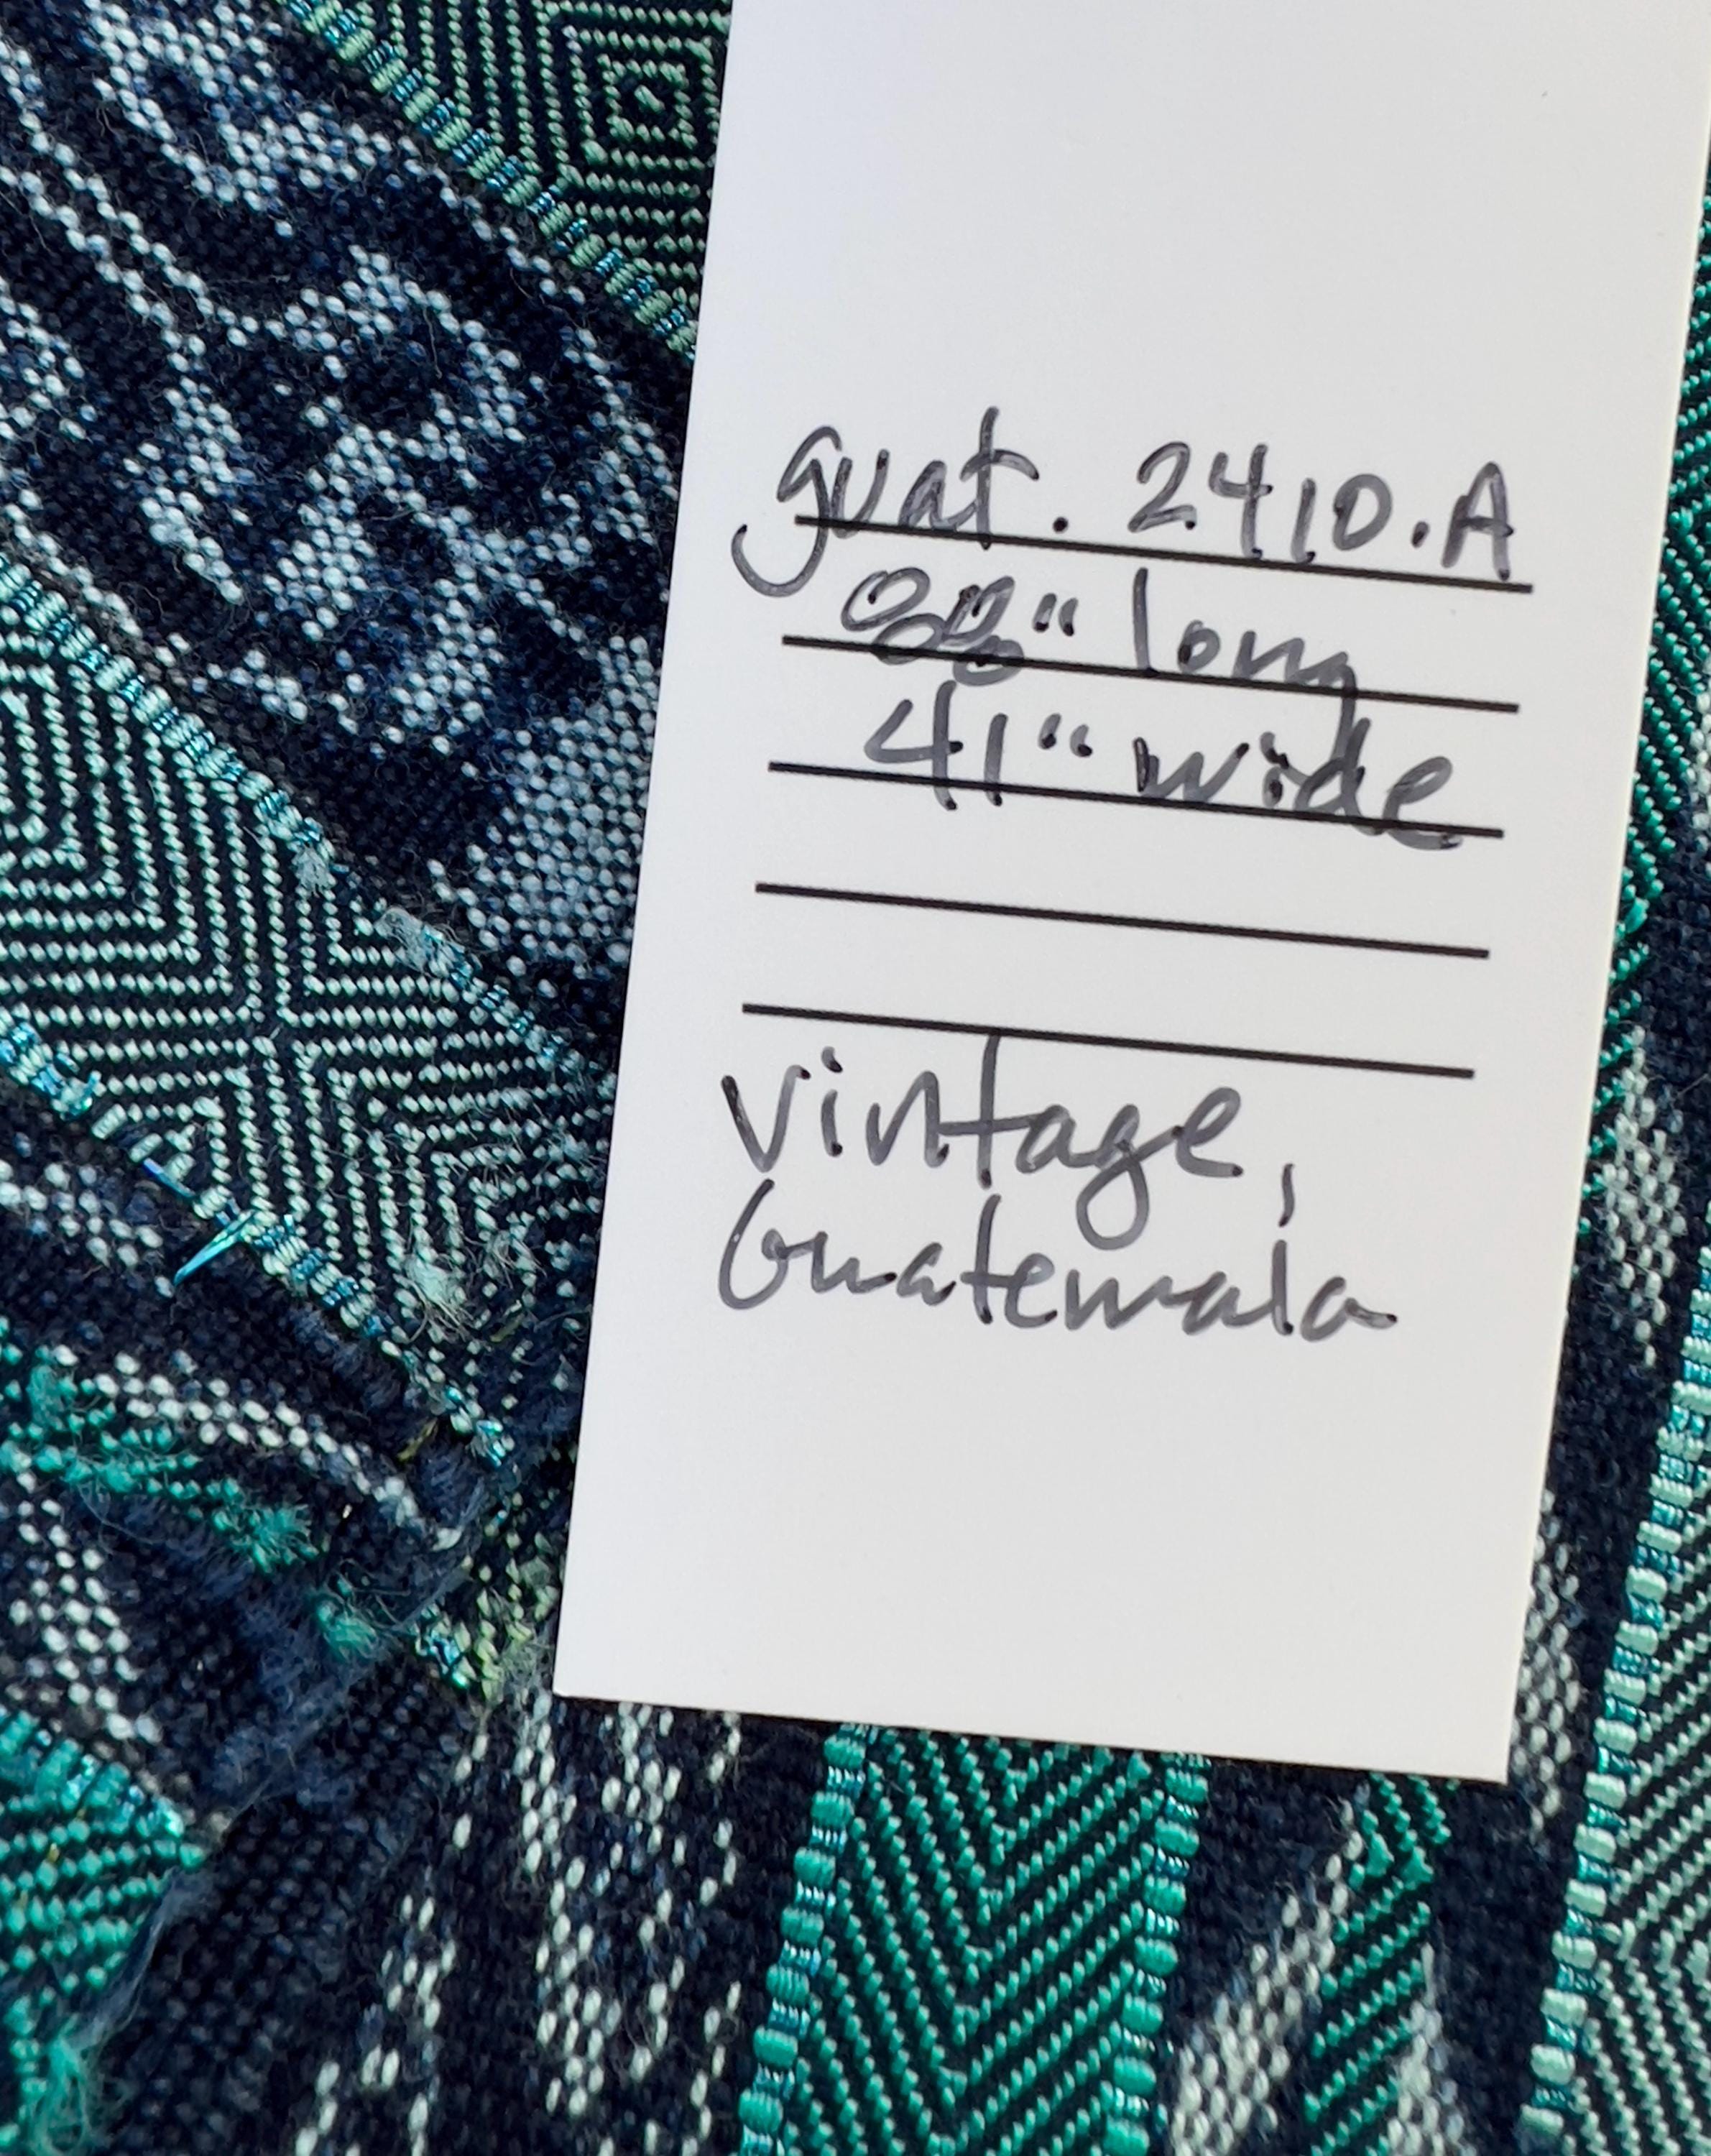 guat. 2410.A
88" long
41" wide
vintage,
Guatemala